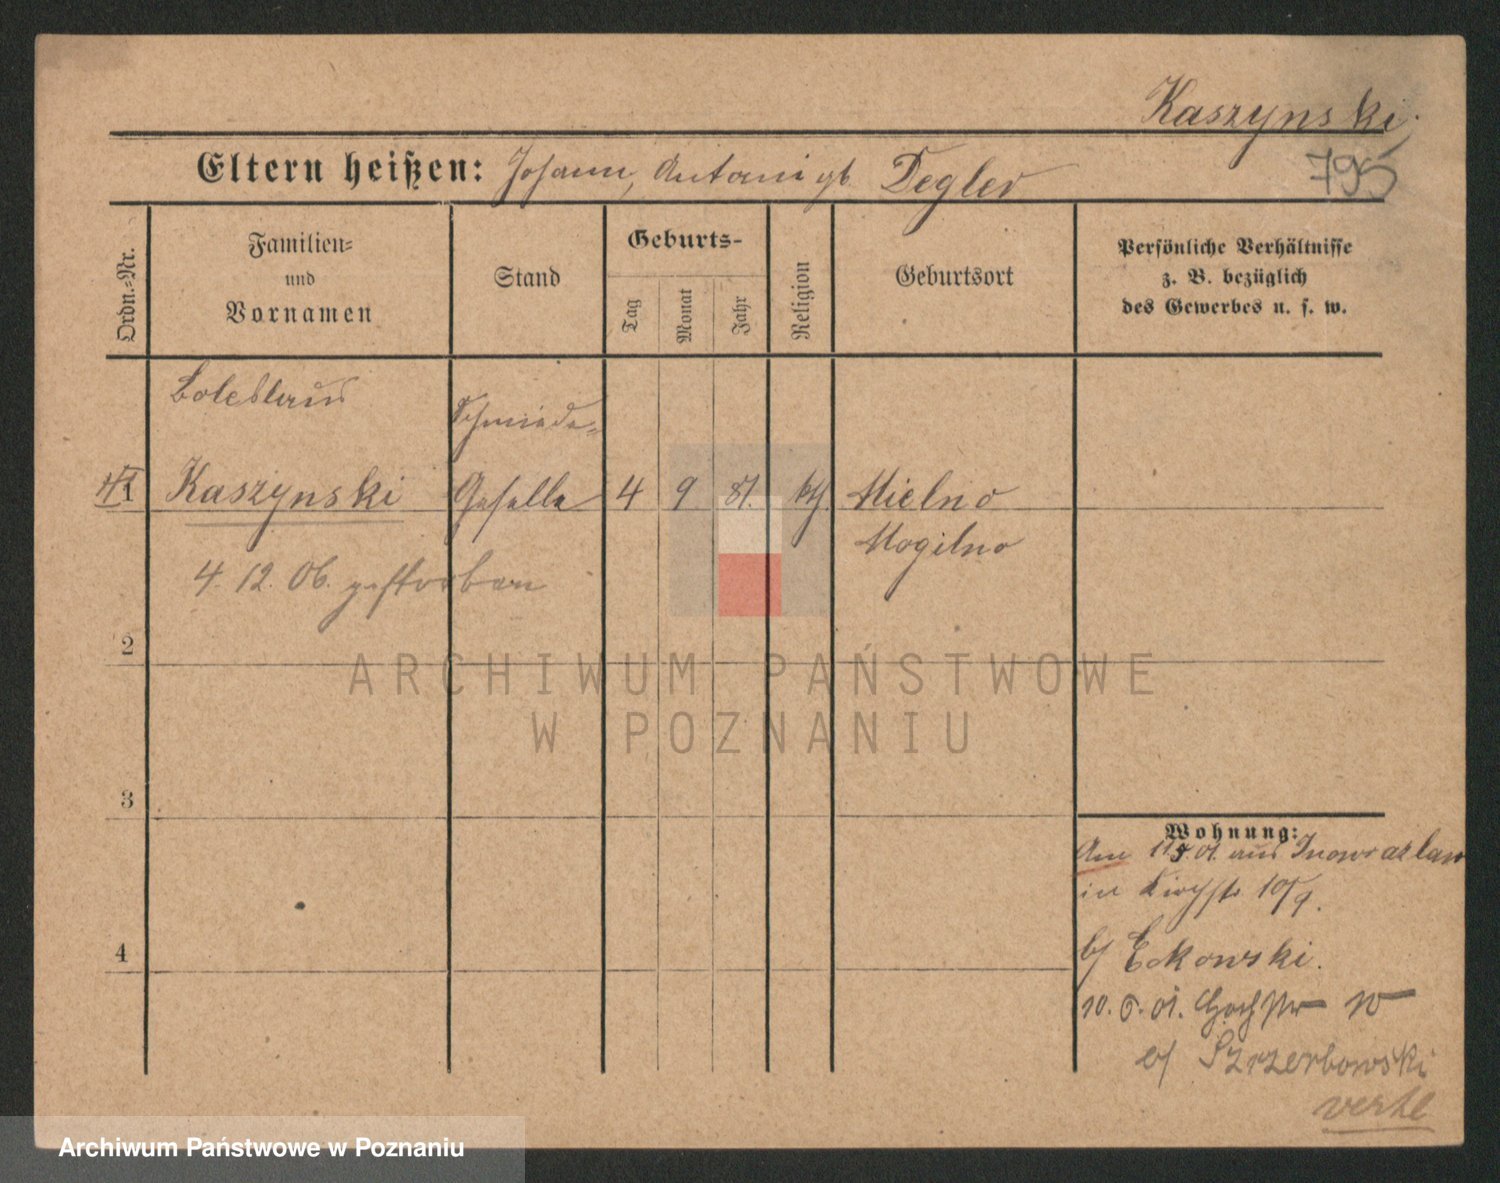 Kaszynski.
795
Eltern heißen: Johann, Antonie gb. Degler
Ordn.-Nr.
Familien-
und
Vornamen
Stand
Geburts-
Tag
Monat
Jahr
Religion
Geburtsort
Persönliche Verhältnisse
z. B. bezüglich
des Gewerbes u. s. w.
Boleslaus
Schmiede-
1 Kaszynski Geselle 4 9 81. kth. Mielno
Mogilno
4. 12. 06. gestorben
2
3
4
Wohnung:
Am 11.5.01. aus Inowrazlaw
in
b/ Eckowski.
10. 6. 01.
b/ Szrzerbowski
ARCHIWUM PAŃSTWOWE
W POZNANIU
Archiwum Państwowe w Poznaniu